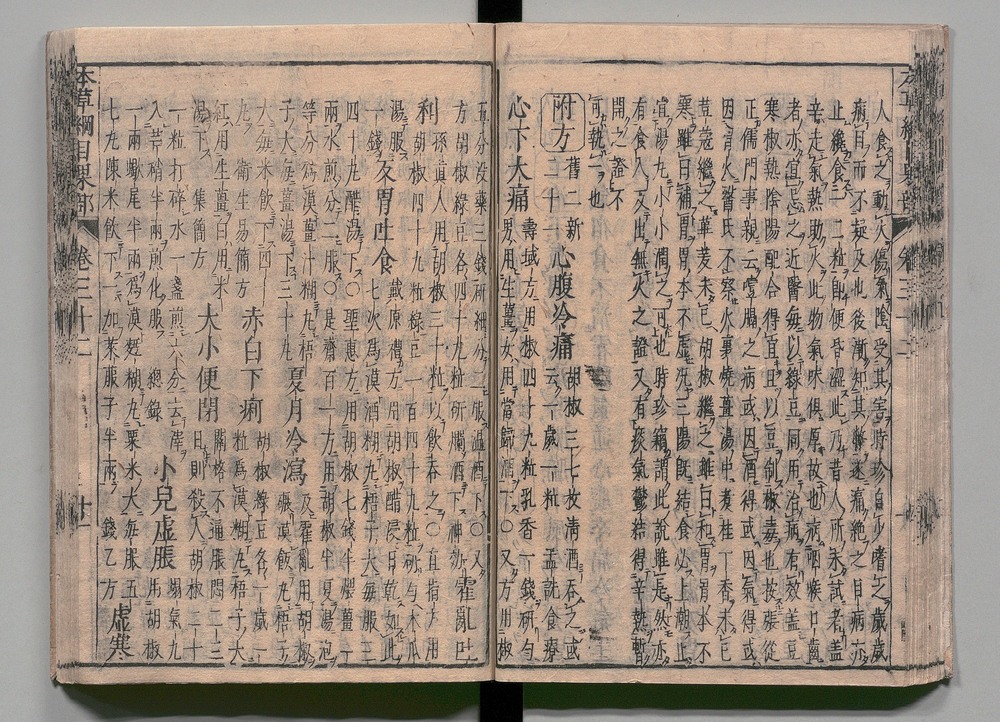 人食之動火傷氣陰受其害時珍自少嗜之歲歲
病目而不疑及也後漸知其弊遂痛絶之目病亦
止纔食一二粒即便昏澀此乃昔人所未試者蓋
辛走氣熱助火此物氣味俱厚故也病咽喉口齒
者亦宜忌之近醫每以綠豆同用治病有效蓋豆
寒椒熱陰陽配合得宜且以豆制椒毒也按張從
正儒門事親云噎膈之病或因酒得或因氣得或
因胃火醫氏不察火裏燒薑湯中煮桂丁香未已
荳蔻繼之蓽茇未已胡椒繼之雖曰和胃胃本不
寒雖曰補胃胃本不虛況三陽既結食必上潮止
宜湯丸小小潤之可也時珍竊謂此說雖是然亦
有食入反出無火之證又有痰氣鬱結得辛熱暫
開之證不
可執一也
附方 舊二 新二十一 心腹冷痛 胡椒三七枚清酒吞之或云一歲一粒 孟詵食療
心下大痛 壽域方用椒四十九粒乳香一錢研勻男用生薑女用當歸酒下〇又方用椒
五分没藥三錢研細分二服温酒下〇又
方胡椒綠豆各四十九粒研爛酒下神効 霍亂吐
利 孫眞人用胡椒三十粒以飲吞之〇直指方用胡椒四十九粒綠豆一百四十九粒研匀木瓜
湯服一錢 反胃吐食 戴原禮方用胡椒醋浸日乾如此七次爲末酒糊丸梧子大每服三
四十九醋湯下〇聖惠方用胡椒七錢半煨薑一
兩水煎分二服〇是齋百一方用胡椒半夏湯泡
等分爲末薑汁糊丸梧
子大每薑湯下三十丸 夏月冷瀉 及霍亂用胡椒碾末飯丸梧子
大每米飲下四十
丸 衞生易簡方 赤白下痢 胡椒綠豆各一歲一粒爲末糊丸梧子大
紅用生薑白用米
湯下 集簡方 大小便閉 關格不通脹悶二三日則殺人胡椒二十
一粒打碎水一盞煎六分去滓
入芒硝半兩煎化服 總錄 小兒虛脹 塌氣丸用胡椒
一兩蠍尾半兩爲末麪糊丸粟米大每服五
七丸陳米飲下一加萊菔子半兩 錢乙方 虛寒